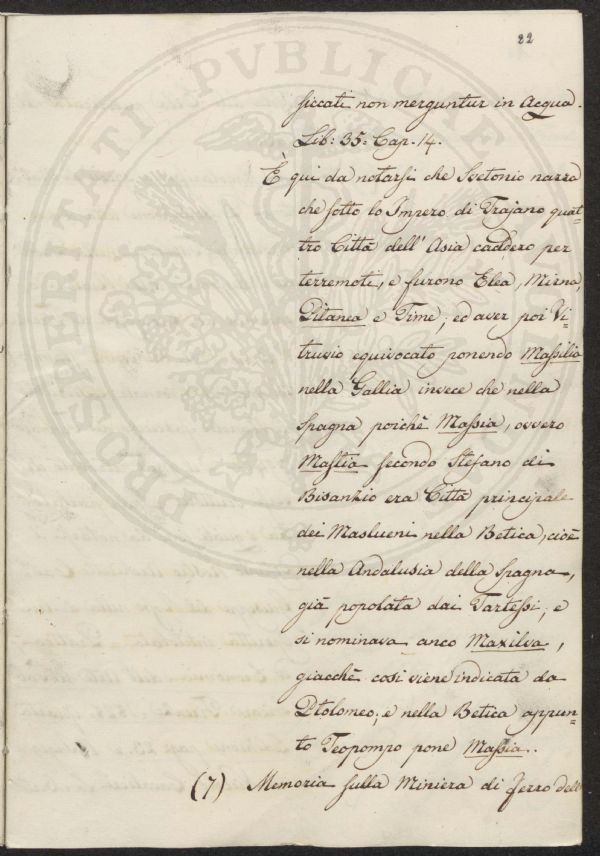 22
siccati non merguntur in Acqua.
Lib: 35: Cap. 14.
È qui da notarsi che Svetonio narra
che sotto lo Impero di Trajano quat=
tro Città dell' Asia caddero per
terremoti, e furono Elea, Mirna,
Pitanea e Time; ed aver poi Vi=
truvio equivocato ponendo Massilia
nella Gallia invece che nella
Spagna poichè Massia, ovvero
Mastia secondo Stefano di
Bisanzio era Città principale
dei Maslueni nella Betica, cioè
nella Andalusia della Spagna,
già popolata dai Tartessi; e
si nominava anco Maxilva,
giacchè così viene indicata da
Ptolomeo; e nella Betica appun=
to Teopompo pone Massia.
(7) Memoria sulla Miniera di ferro dell'
PROSPERITATI PVBLICAE